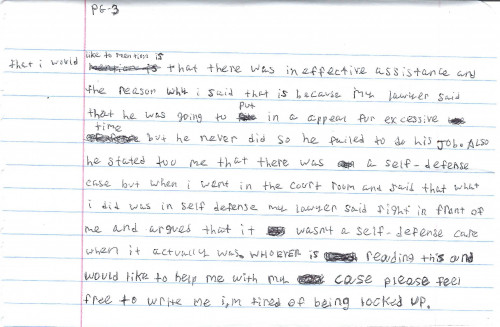 PG-3
like to mention is
that i would that there was ineffective assistance and
the reason why i said that is because my lawyer said
that he was going to put in a appeal for excessive
time but he never did so he failed to do his JOB. ALSO
he stated too me that there was a self-defense
case but when i went in the court room and said that what
i did was in self defense my lawyer said right in front of
me and argues that it wasn't a self-defense case
when it actually was. WHOEVER is reading this and
would like to help me with my case please feel
free to write me i,m tired of being locked up.